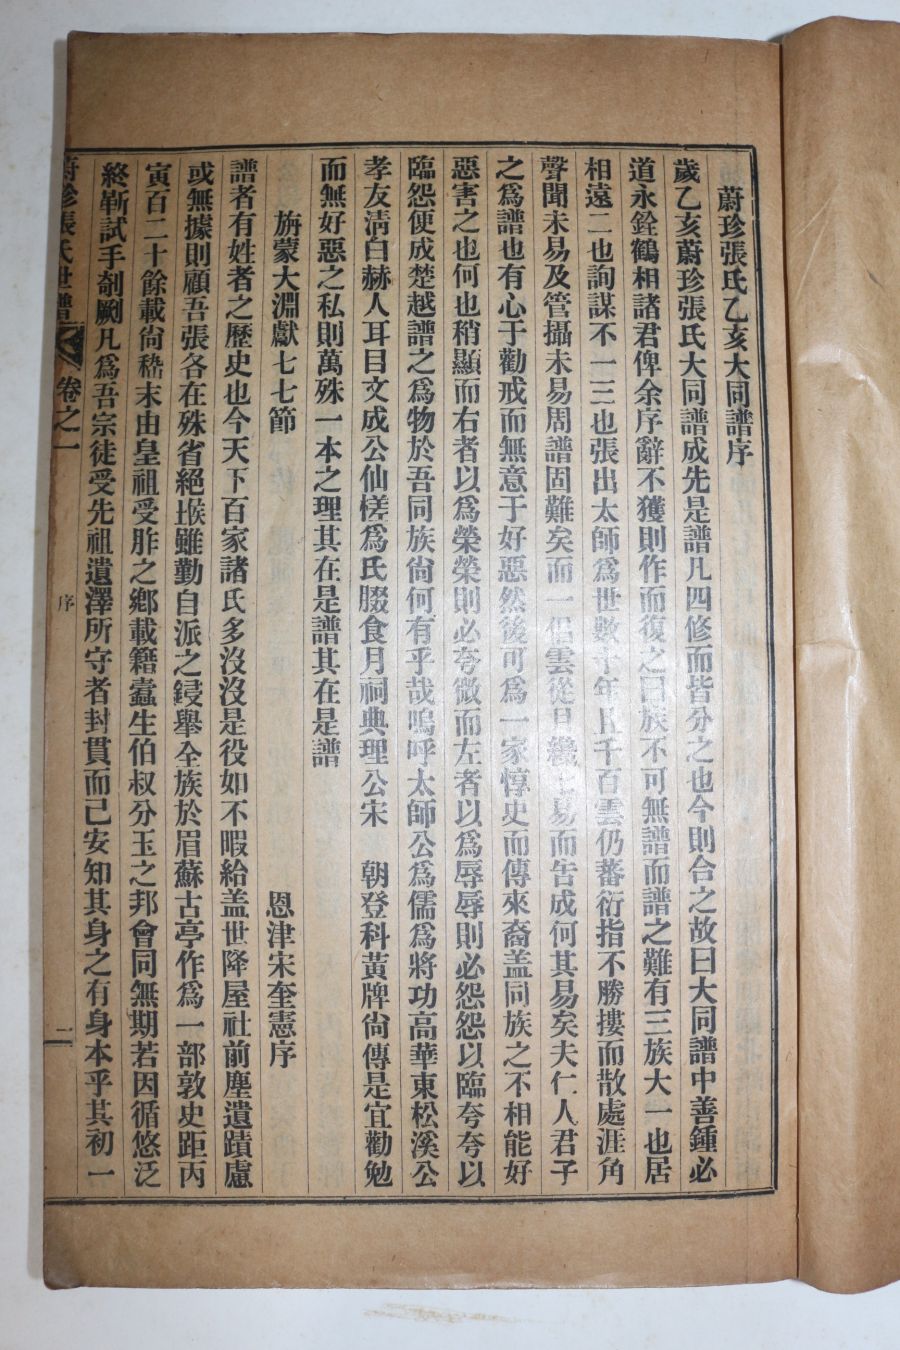 蔚珍張氏乙亥大同譜序
歲乙亥蔚珍張氏大同譜成先是譜凡四修而皆分之也今則合之故曰大同譜中善鍾必
道永銓鶴相諸君俾余序辭不獲則作而復之曰族不可無譜而譜之難有三族大一也居
相遠二也詢謀不一三也張出太師爲世數十年且千百雲仍蕃衍指不勝摟而散處涯角
聲聞未易及管攝未易周譜固難矣而一倡雲從旦幾七易而告成何其易矣夫仁人君子
之爲譜也有心于勸戒而無意于好惡然後可爲一家惇史而傳來裔盖同族之不相能好
惡害之也何也稍顯而右者以爲榮榮則必夸微而左者以爲辱辱則必怨怨以臨夸夸以
臨怨便成楚越譜之爲物於吾同族尙何有乎哉嗚呼太師公爲儒爲將功高華東松溪公
孝友淸白赫人耳目文成公仙槎爲氏腏食月祠典理公宋 朝登科黃牌尙傳是宜勸勉
而無好惡之私則萬殊一本之理其在是譜其在是譜
旃蒙大淵獻七七節 恩津宋奎憲序
譜者有姓者之歷史也今天下百家諸氏多沒沒是役如不暇給盖世降屋社前塵遺蹟慮
或無據則顧吾張各在殊省絕堠雖勤自派之鋟擧全族於眉蘇古亭作爲一部敦史距丙
寅百二十餘載尙稽末由皇祖受胙之鄕載籍蠧生伯叔分玉之邦會同無期若因循悠泛
終嶄試手剞劂凡爲吾宗徒受先祖遺澤所守者封貫而已安知其身之有身本乎其初一
蔚珍張氏世譜 卷之一 序 二